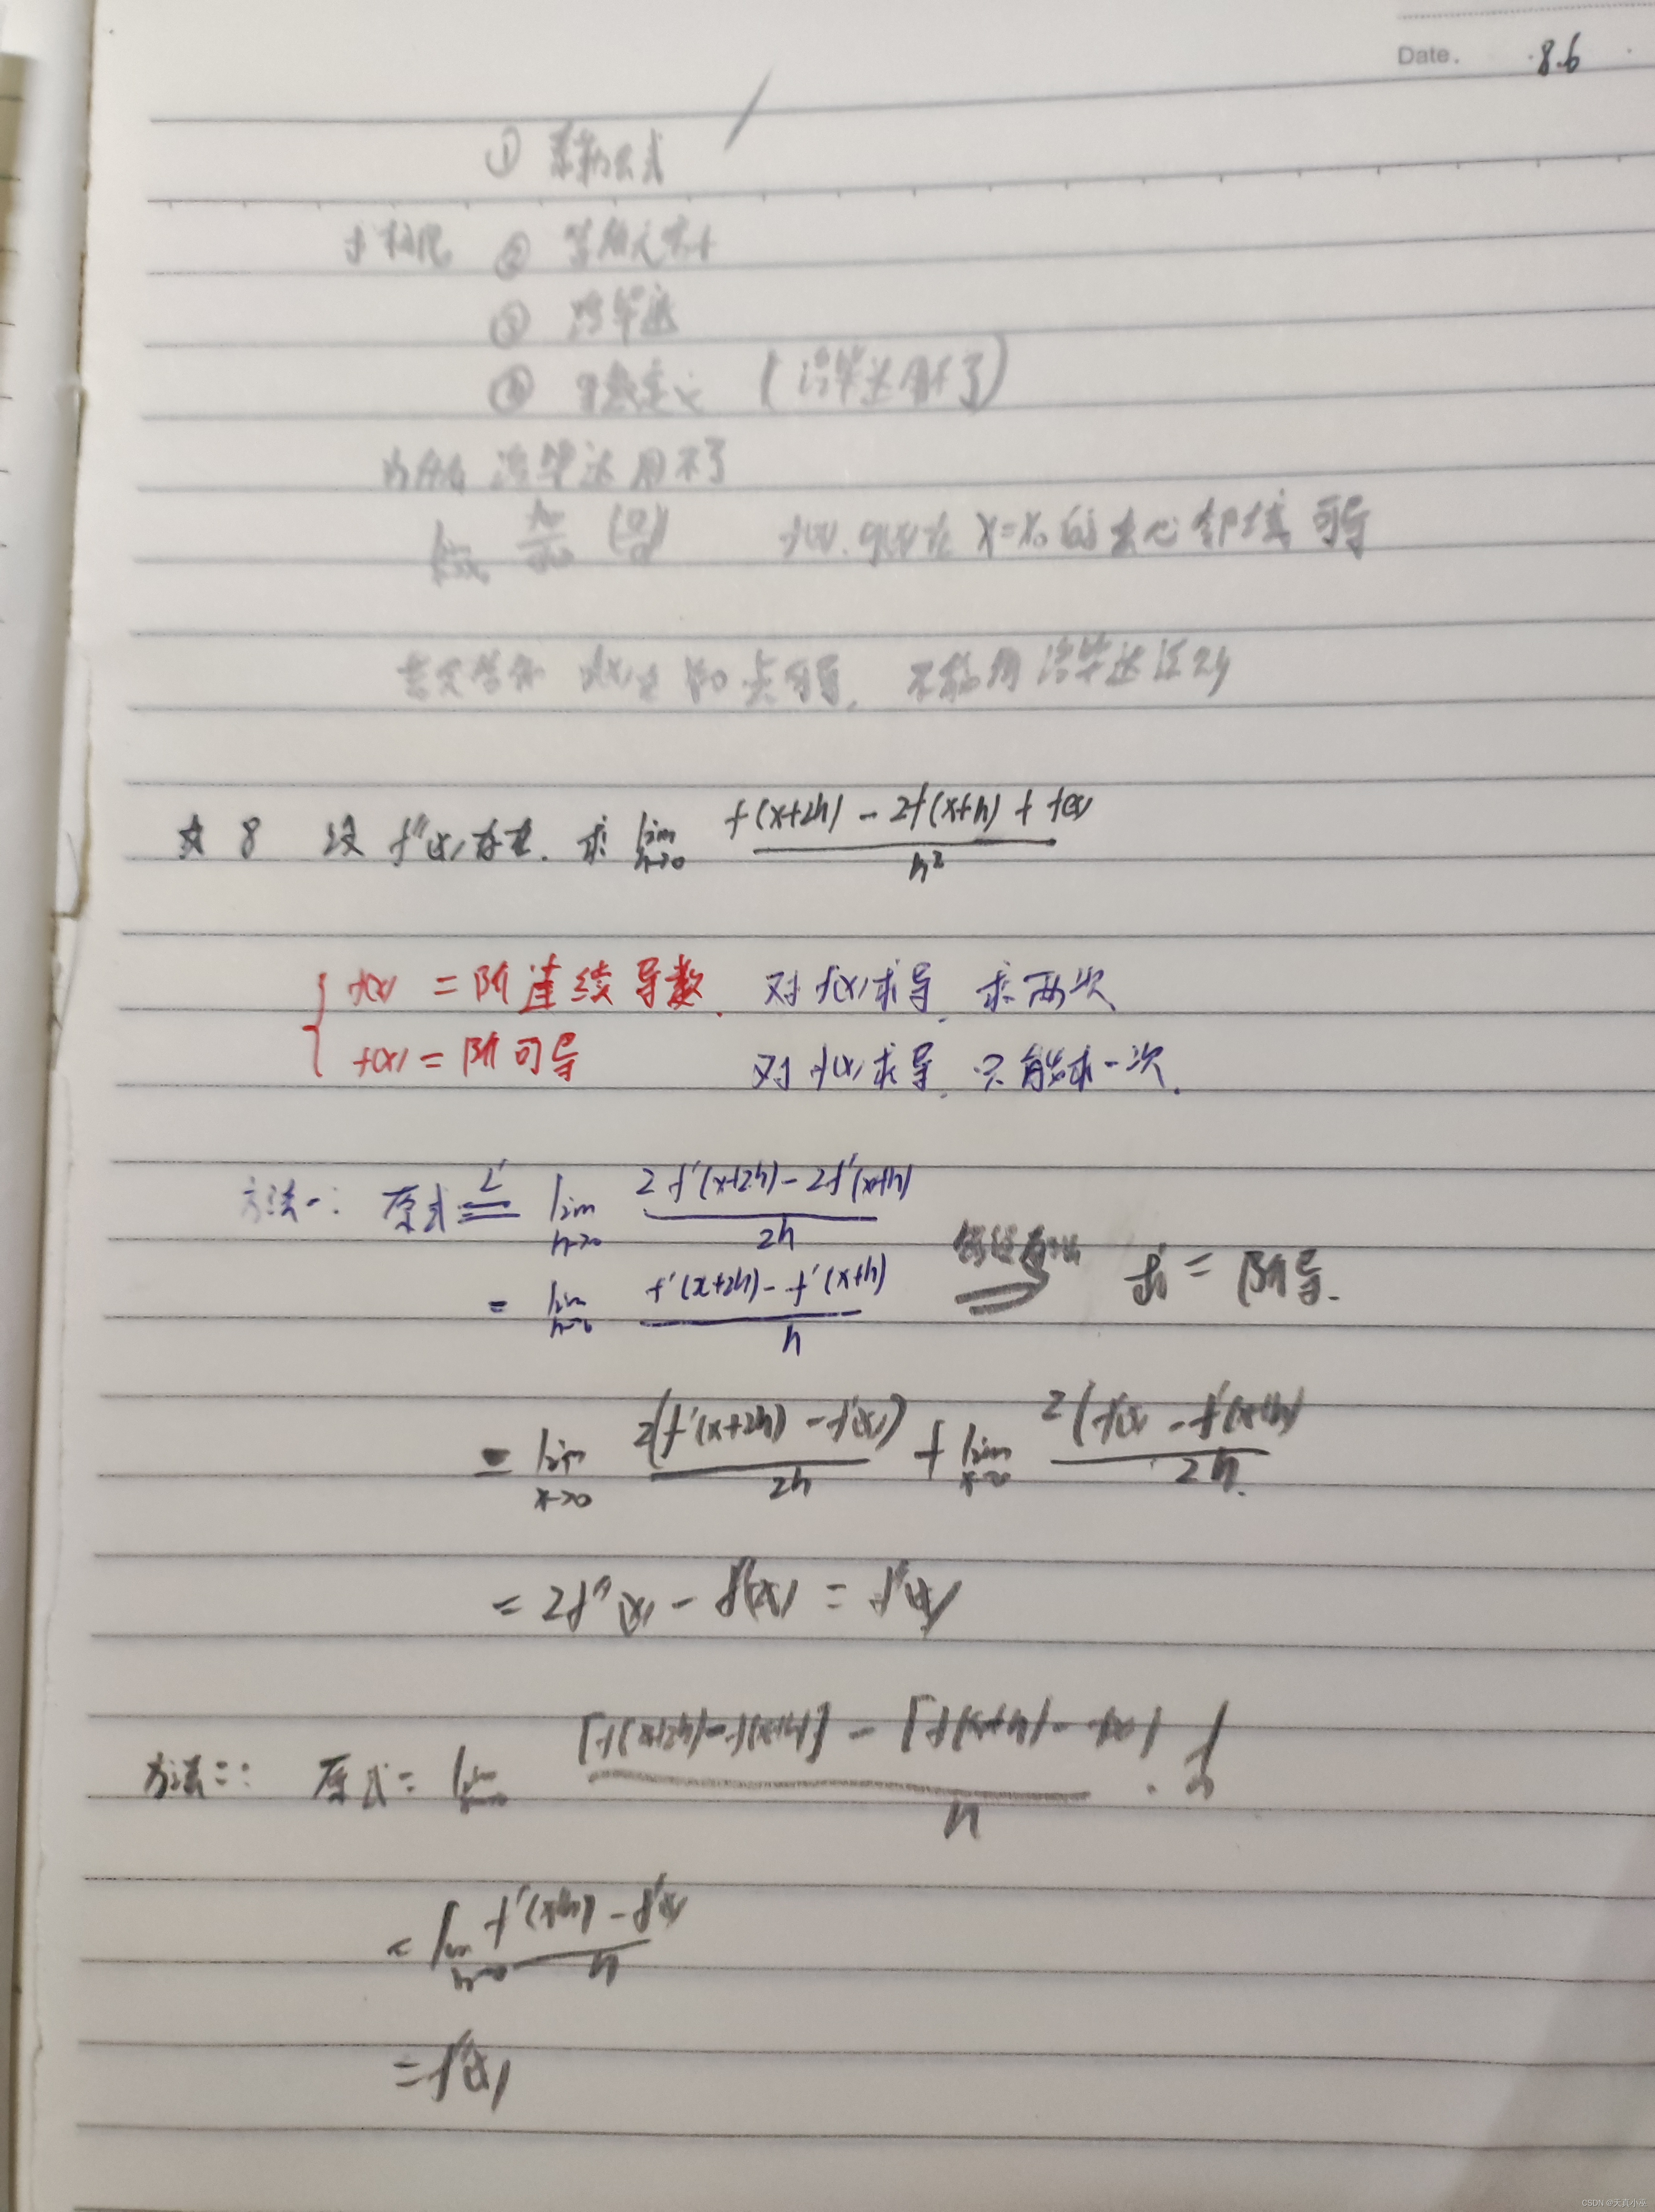 Date. 8.6
① 泰勒公式
求极限 ② 等价无穷小
③ 洛毕达
④ 导数定义 (洛毕达用不了)
为什么 洛毕达用不了
lim (0/0) f(x).g(x)在 x=x₀ 的去心邻域可导
f(x)在 阶 可导, 不能用洛毕达
☆ 8 设 f''(x)存在. 求 lim h→0 (f(x+2h) - 2f(x+h) + f(x))/h²
{ f(x) 二阶连续导数. 对f(x)求导, 求两次
f(x) 二阶可导 对f(x)求导, 只能求一次.
方法一: 原式 =L' lim h→0 (2f'(x+2h) - 2f'(x+h))/2h
= lim h→0 (f'(x+2h) - f'(x+h))/h ⇒ 二阶导.
= lim x→0 2(f'(x+2h) - f'(x))/2h + lim x→0 2(f'(x) - f'(x+h))/2h.
= 2f''(x) - f''(x) = f''(x)
方法二: 原式 = lim h→0 ([f(x+2h) - f(x+h)] - [f(x+h) - f(x)])/h · 1/h
= lim h→0 (f'(x+h) - f'(x))/h
= f''(x)
CSDN @天真小巫